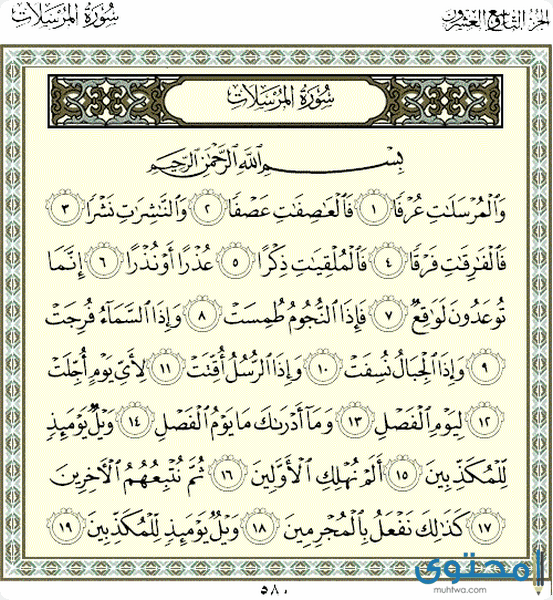 الجزء التاسع والعشرون
سُورَةُ المُرْسَلَاتِ
سُورَةُ المُرْسَلَاتِ
بِسْمِ اللَّهِ الرَّحْمَٰنِ الرَّحِيمِ
وَالْمُرْسَلَاتِ عُرْفًا ١ فَالْعَاصِفَاتِ عَصْفًا ٢ وَالنَّاشِرَاتِ نَشْرًا ٣
فَالْفَارِقَاتِ فَرْقًا ٤ فَالْمُلْقِيَاتِ ذِكْرًا ٥ عُذْرًا أَوْ نُذْرًا ٦ إِنَّمَا
تُوعَدُونَ لَوَاقِعٌ ٧ فَإِذَا النُّجُومُ طُمِسَتْ ٨ وَإِذَا السَّمَاءُ فُرِجَتْ
٩ وَإِذَا الْجِبَالُ نُسِفَتْ ١٠ وَإِذَا الرُّسُلُ أُقِّتَتْ ١١ لِأَيِّ يَوْمٍ أُجِّلَتْ
١٢ لِيَوْمِ الْفَصْلِ ١٣ وَمَا أَدْرَاكَ مَا يَوْمُ الْفَصْلِ ١٤ وَيْلٌ يَوْمَئِذٍ
لِّلْمُكَذِّبِينَ ١٥ أَلَمْ نُهْلِكِ الْأَوَّلِينَ ١٦ ثُمَّ نُتْبِعُهُمُ الْآخِرِينَ
١٧ كَذَٰلِكَ نَفْعَلُ بِالْمُجْرِمِينَ ١٨ وَيْلٌ يَوْمَئِذٍ لِّلْمُكَذِّبِينَ ١٩
٥٨٠
محتوى
muhtwa.com